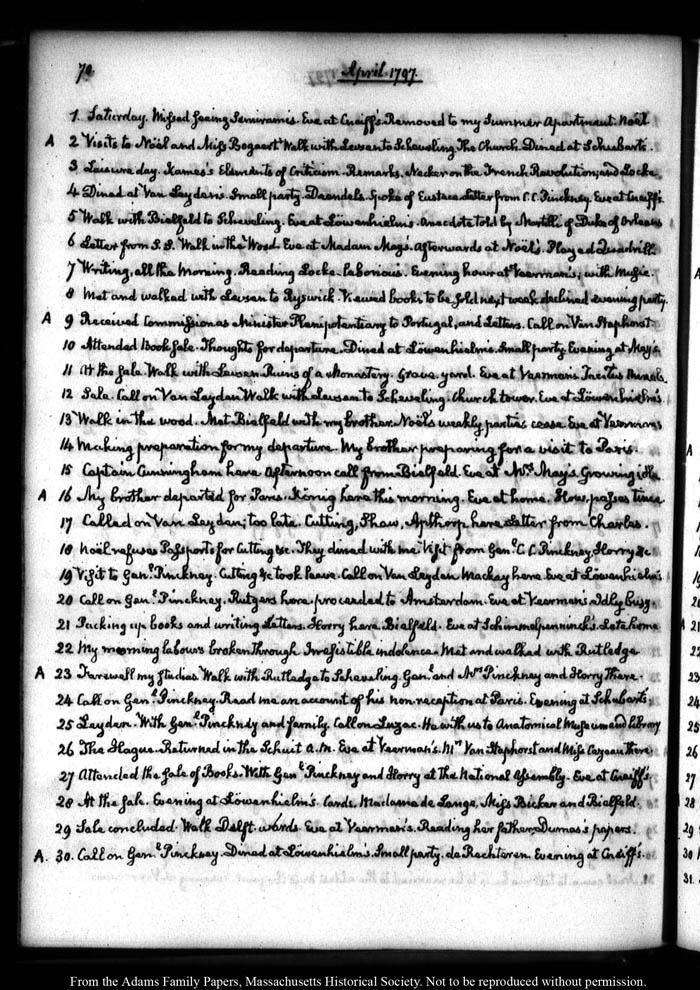 70
April. 1797.
1. Saturday. Missed seeing Semiramis. Eve at Cneiff's. Removed to my Summer Apartment. Noël
A 2 Visits to Noël and Miss Bogaert Walk with Levsen to Scheveling. The Church. Dined at Schubart's.
3 Leisure day. Kames's Elements of Criticism. Remarks. Necker on the French Revolution; and Locke
4 Dined at Van Leyden's. Small party. Daendels. Spoke of Eustace Letter from C. C. Pinckney. Eve at Cneiff's.
5 Walk with Bielfeld to Scheveling. Eve at Löwenhielm's. Anecdote told by Nyvelle of Duke of Orleans
6 Letter from Walk in the Wood. Eve at Madam Mays. Afterwards at Noël's. Played Quadrill.
7 Writing, all the Morning. Reading Locke. laborious. Evening hour at Veerman's; with Music.
8 Met and walked with Levsen to Ryswick. Viewed books to be sold next week. declined evening party.
A 9 Received Commission as Minister Plenipotentiary to Portugal, and Letters. Call on Van Staphorst.
10 Attended Book Sale. Thoughts for departure. Dined at Löwenhielm's. Small party. Evening at May's
11 At the sale. Walk with Levsen. Ruins of a Monastery. Grave yard. Eve at Veerman's
12 Sale. Call on Van Leyden Walk with Levsen to Scheveling. Church tower. Eve at Löwenhielm's.
13 Walk in the wood. Met Bielfeld with my brother. Noël's weekly parties cease. Eve at Veermans
14 Making preparation for my departure. My brother preparing for a visit to Paris.
15 Captain Cunningham here Afternoon call from Bielfeld. Eve at Mrs. May's. Growing idle
A 16 My brother departed for Paris. König here this morning. Eve at home. How passes time
17 Called on Van Leyden; too late. Cutting, Shaw, Apthorp here Letter from Charles.
18 Noël refuses Passports for Cutting &c. They dined with me. Visit from Genl. C. C. Pinckney, Horry &c
19 Visit to Genl. Pinckney. Cutting &c took leave. Call on Van Leyden Mackay here. Eve at Löwenhielm's
20 Call on Genl. Pinckney. Rutgers here. proceeded to Amsterdam. Eve at Veerman's. Idly busy.
21 Packing up books and writing Letters. Horry here. Bielfeld. Eve at Schimmelpenninck's. Late home
22 My morning labours broken through. Irresistible indolence. Met and walked with Rutledge
A 23 Farewell my studies. Walk with Rutledge to Scheveling. Genl. and Mrs Pinckney and Horry There.
24 Call on Genl. Pinckney. Read me an account of his non-reception at Paris. Evening at Schubarts
25 Leyden. With Genl. Pinckney and family. Call on Luzac. He with us to Anatomical Musaeum and Library
26 The Hague. Returned in the Schuit A.M. Eve at Veerman's. Mrs Van Staphorst and Miss Cazeau there
27 Attended the Sale of Books. With Genl Pinckney and Horry at the National Assembly. Eve at Cneiff's
28 At the Sale. Evening at Löwenhielm's. Cards. Madame de Lange, Miss Bicker and Bielfeld.
29 Sale concluded. Walk Delft wards. Eve at Veerman's. Reading her father, Dumas's papers.
A. 30. Call on Genl. Pinckney. Dined at Löwenhielm's. Small party. de Rechteren. Evening at Cneiff's.
From the Adams Family Papers, Massachusetts Historical Society. Not to be reproduced without permission.